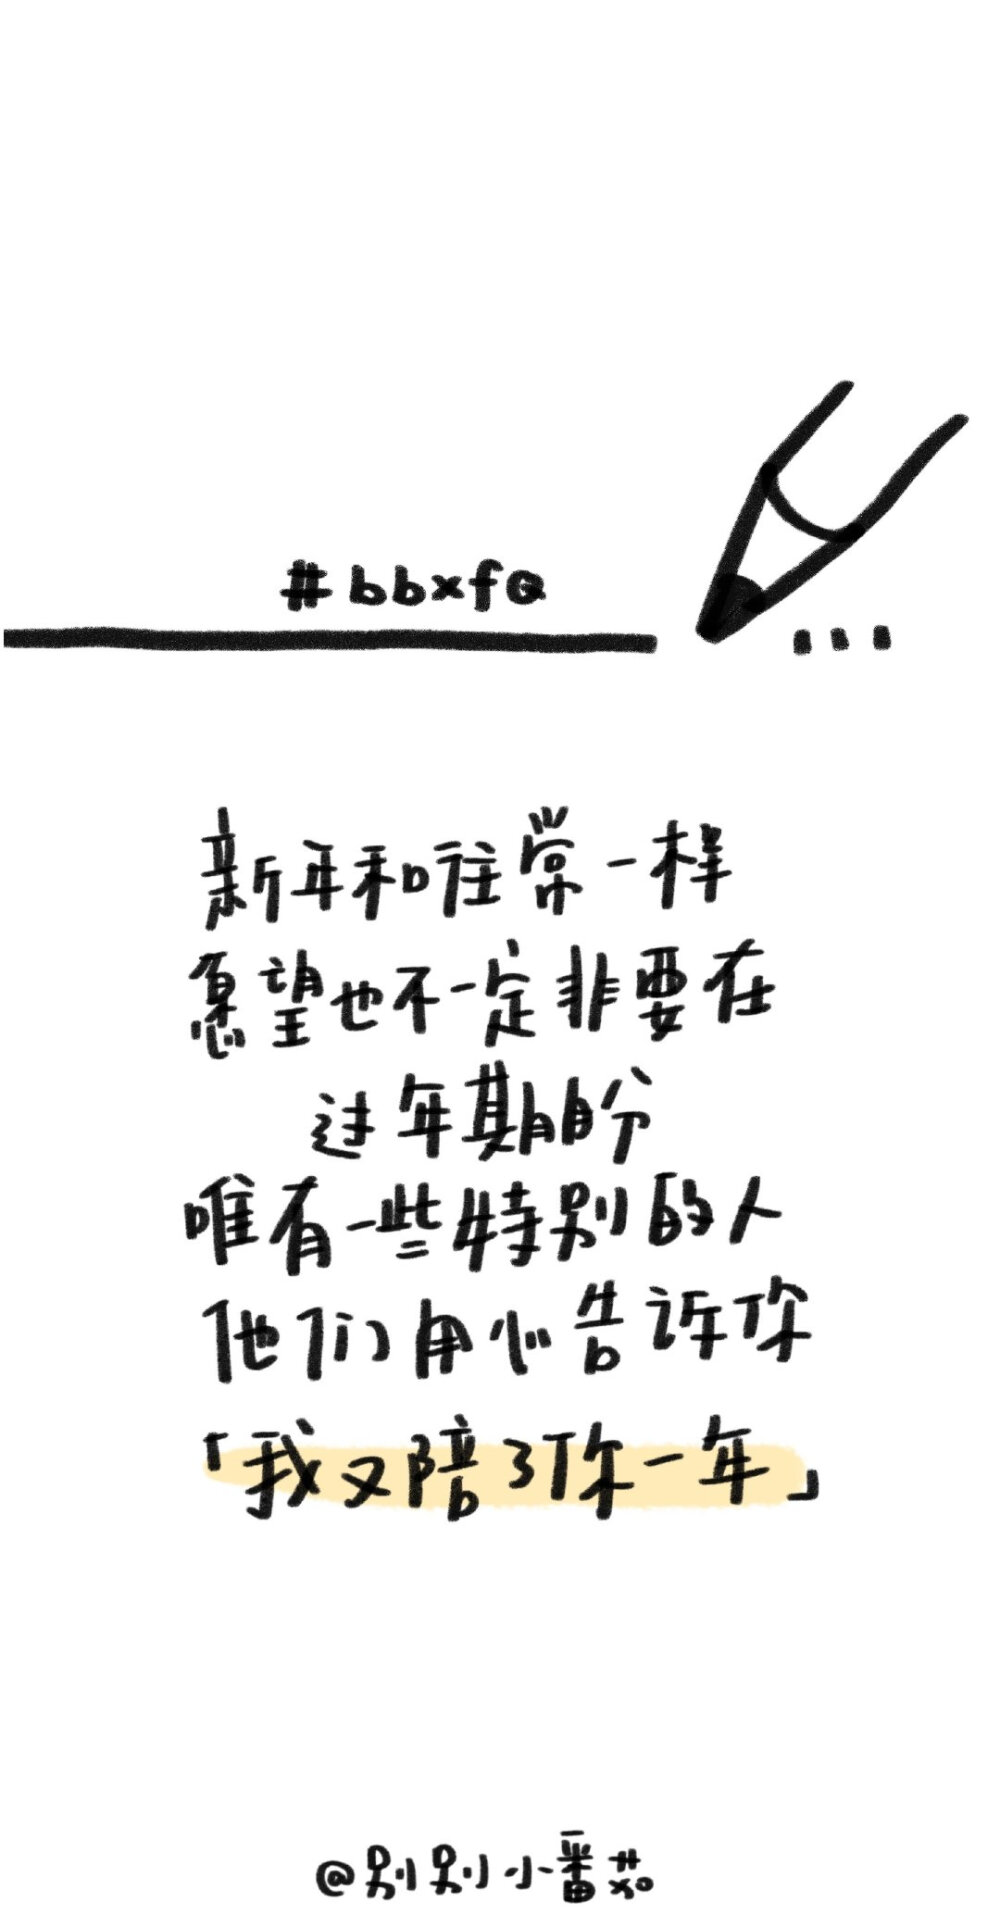 #bbxfq
新年和往常一样
愿望也不一定非要在
过年期盼
唯有一些特别的人
他们用心告诉你
「我又陪了你一年」
@别别小番茄